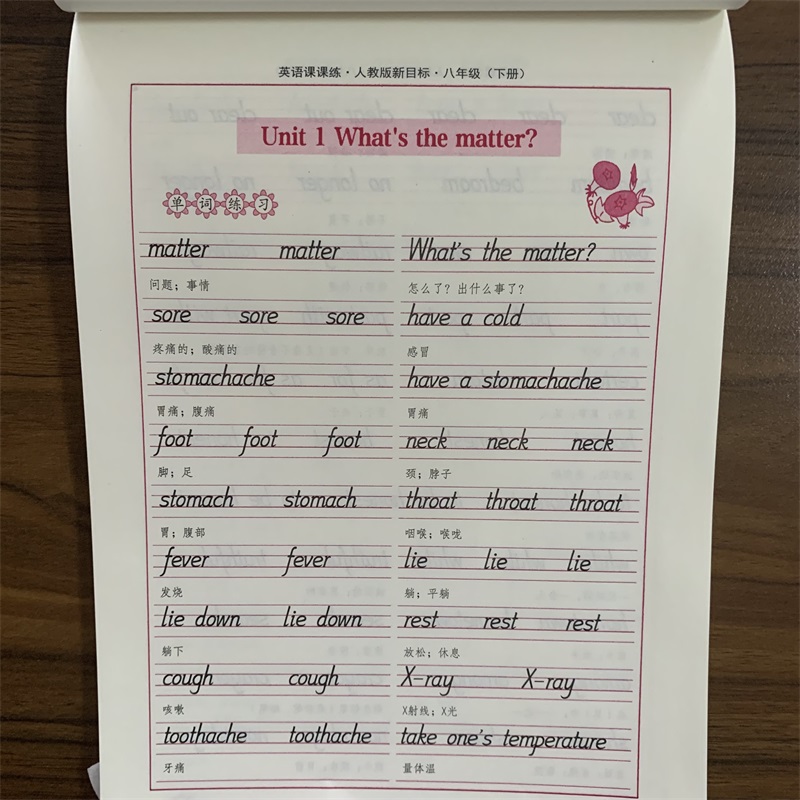 英语课课练·人教版新目标·八年级（下册）
Unit 1 What's the matter?
单词练习
matter matter What's the matter?
问题；事情 怎么了？出什么事了？
sore sore sore have a cold
疼痛的；酸痛的 感冒
stomachache have a stomachache
胃痛；腹痛 胃痛
foot foot foot neck neck neck
脚；足 颈；脖子
stomach stomach throat throat throat
胃；腹部 咽喉；喉咙
fever fever lie lie lie
发烧 躺；平躺
lie down lie down rest rest rest
躺下 放松；休息
cough cough X-ray X-ray
咳嗽 X射线；X光
toothache toothache take one's temperature
牙痛 量体温